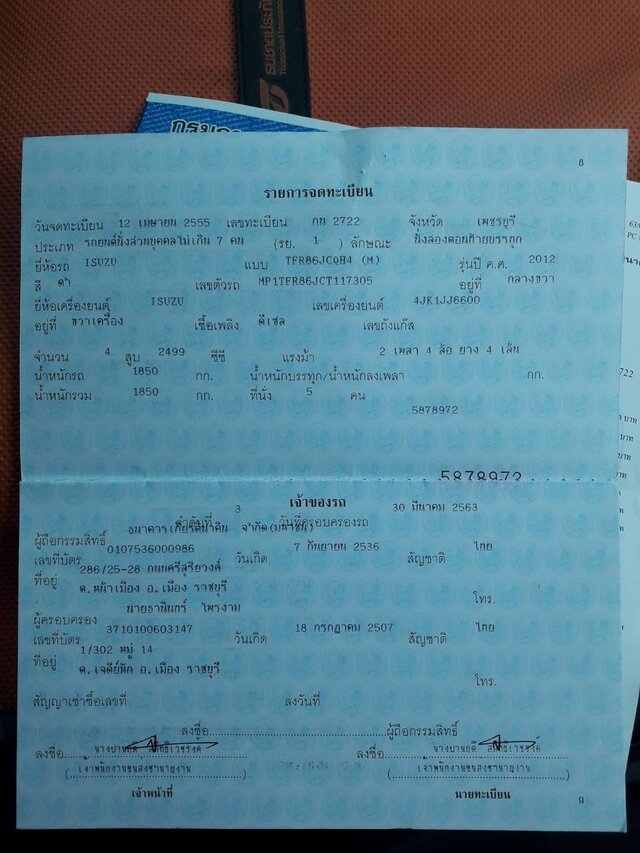 ธนชาตประกัน
Thanachart Insurance
กรมกา
8
รายการจดทะเบียน
วันจดทะเบียน 12 เมษายน 2555 เลขทะเบียน กน 2722 จังหวัด เพชรบุรี
ประเภท รถยนต์นั่งส่วนบุคคลไม่เกิน 7 คน (รย. 1 ) ลักษณะ นั่งสองตอนท้ายบรรทุก
ยี่ห้อรถ ISUZU แบบ TFR86JCQH4 (M) รุ่นปี ค.ศ. 2012
สี ดำ เลขตัวรถ MP1TFR86JCT117305 อยู่ที่ กลางขวา
ยี่ห้อเครื่องยนต์ ISUZU เลขเครื่องยนต์ 4JK1JJ6600
อยู่ที่ ขวาเครื่อง เชื้อเพลิง ดีเซล เลขถังแก๊ส
จำนวน 4 สูบ 2499 ซีซี แรงม้า 2 เพลา 4 ล้อ ยาง 4 เส้น
น้ำหนักรถ 1850 กก. น้ำหนักบรรทุก/น้ำหนักลงเพลา กก.
น้ำหนักรวม 1850 กก. ที่นั่ง 5 คน
5878972
5878972
เจ้าของรถ
ลำดับที่ 3 วันที่ครอบครองรถ 30 มีนาคม 2563
ผู้ถือกรรมสิทธิ์ ธนาคารเกียรตินาคิน จำกัด(มหาชน)
เลขที่บัตร 0107536000986 วันเกิด 7 กันยายน 2536 สัญชาติ ไทย
ที่อยู่ 286/25-28 ถนนศรีสุริยวงศ์
ต.หน้าเมือง อ.เมือง ราชบุรี
โทร.
ผู้ครอบครอง นายธานินทร์ ไพรงาม
เลขที่บัตร 3710100603147 วันเกิด 18 กรกฎาคม 2507 สัญชาติ ไทย
ที่อยู่ 1/302 หมู่ 14
ต.เจดีย์หัก อ.เมือง ราชบุรี
โทร.
สัญญาเช่าซื้อเลขที่ ลงวันที่
ลงชื่อ ผู้ถือกรรมสิทธิ์
ลงชื่อ ลงชื่อ
(เจ้าพนักงานขนส่งชำนาญงาน) (เจ้าพนักงานขนส่งชำนาญงาน)
เจ้าหน้าที่ นายทะเบียน
2722
บาท
บาท
บาท
บาท